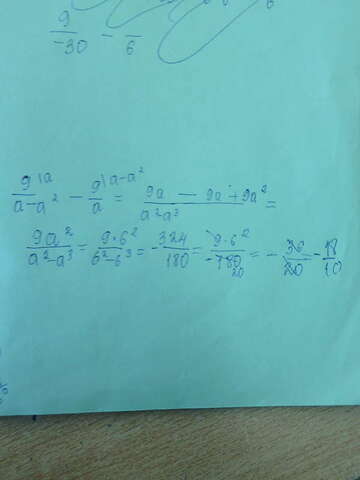 9/-30 - /6
9|a/a-a² - 9|a-a²/a = 9a - 9a+9a²/a²a³ =
9a²/a²-a³ = 9·6²/6²-6³ = -324/180 = 9·6²/-180 20 = -36/20 = -18/10